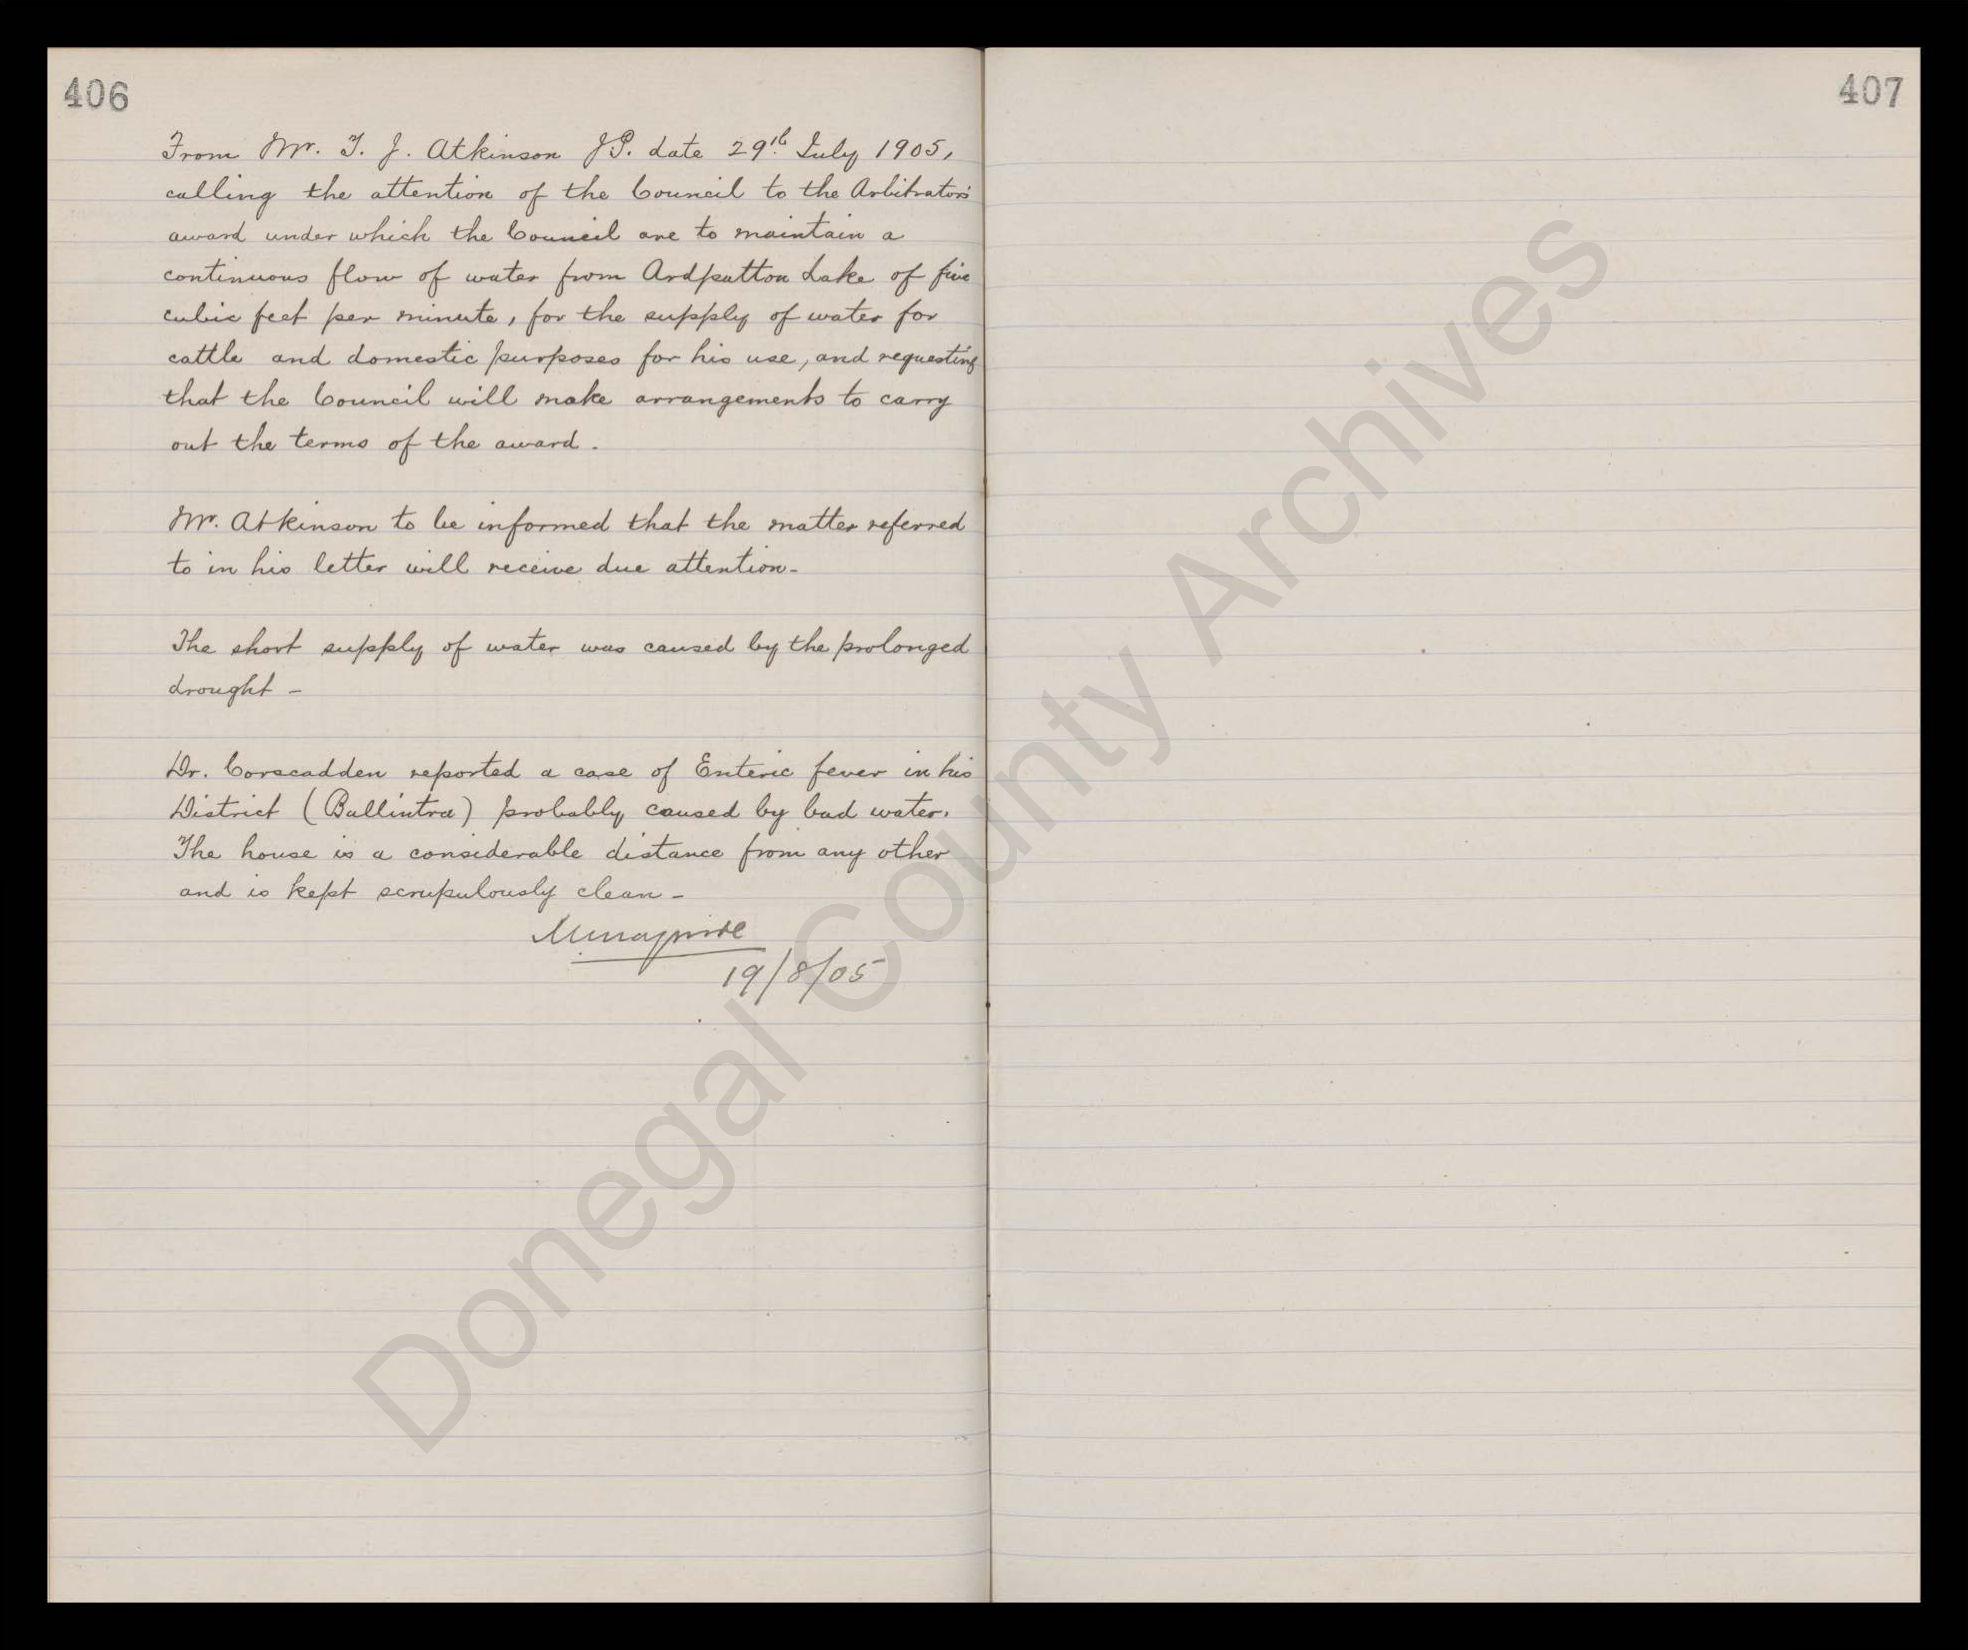 406
From Mr. T. J. Atkinson J.P. date 29th July 1905,
calling the attention of the Council to the Arbitrator's
award under which the Council are to maintain a
continuous flow of water from Ardpatton Lake of five
cubic feet per minute, for the supply of water for
cattle and domestic purposes for his use, and requesting
that the Council will make arrangements to carry
out the terms of the award.
Mr. Atkinson to be informed that the matter referred
to in his letter will receive due attention -
The short supply of water was caused by the prolonged
drought -
Dr. Corscadden reported a case of Enteric fever in his
District (Ballintra) probably caused by bad water.
The house is a considerable distance from any other
and is kept scrupulously clean -
19/8/05
407
Donegal County Archives